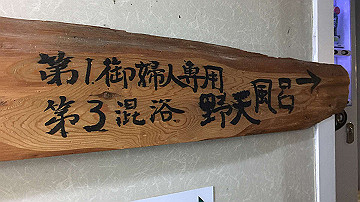 第1御婦人専用
第3混浴 野天風呂→